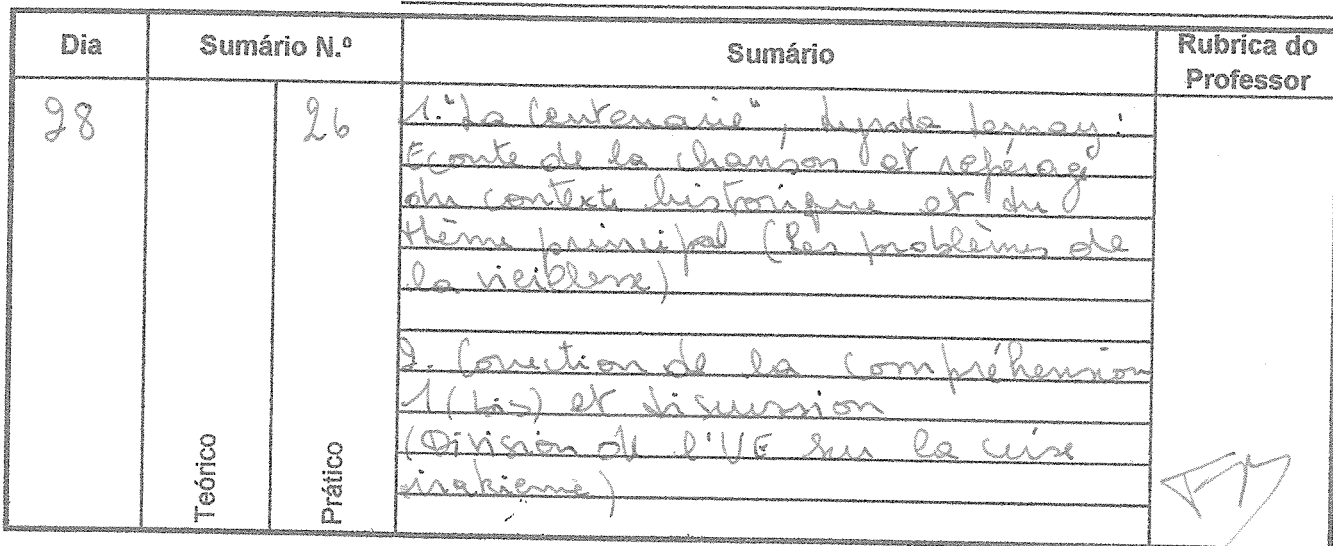 Dia Sumário N.º Sumário Rubrica do Professor
28 26 1. "La Centenaire", Lynda Lemay :
Ecoute de la chanson et repérage
du contexte historique et du
thème principal (les problèmes de
la vieillesse)
2. Correction de la compréhension
1 (bis) et discussion
(Division de l'UE sur la crise
irakienne)
Teórico Prático